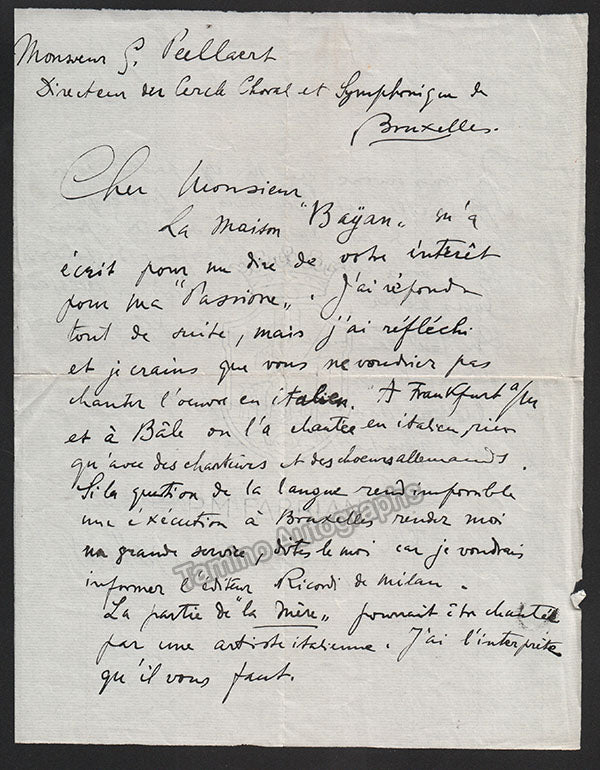 Monsieur G. Peellaert
Directeur du Cercle Choral et Symphonique de
Bruxelles.
Cher Monsieur
La Maison "Baÿan„ m'a
écrit pour me dire de votre intérêt
pour ma "Passione„. J'ai répondu
tout de suite, mais j'ai réfléchi
et je crains que vous ne voudrier pas
chanter l'oeuvre en italien. A Frankfurt a/M
et à Bâle on l'a chantée en italien,
qu'avec des chanteurs et des choeurs allemands.
Si la question de la langue rend impossible
une éxécution à Bruxelles rendez moi
grande service, dites le moi car je voudrais
informer l'éditeur Ricordi de Milan.
La partie de "la Mère„ pourrait être chantée
par une artiste italienne. J'ai l'interprète
qu'il vous faut.
Tamino Autographs